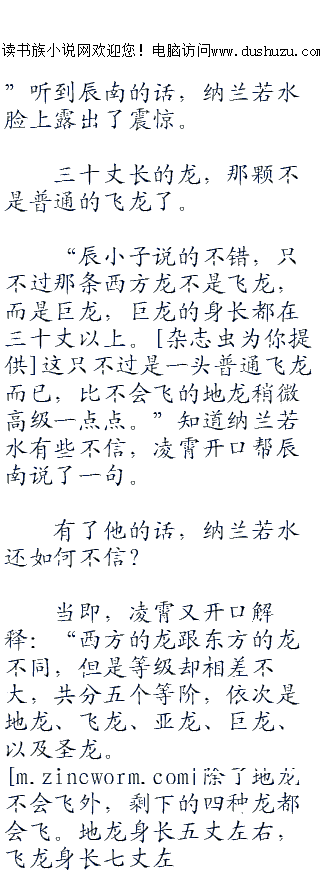 读书族小说网欢迎您！电脑访问www.dushuzu.com
”听到辰南的话，纳兰若水
脸上露出了震惊。
三十丈长的龙，那颗不
是普通的飞龙了。
“辰小子说的不错，只
不过那条西方龙不是飞龙，
而是巨龙，巨龙的身长都在
三十丈以上。[杂志虫为你提
供]这只不过是一头普通飞龙
而已，比不会飞的地龙稍微
高级一点点。”知道纳兰若
水有些不信，凌霄开口帮辰
南说了一句。
有了他的话，纳兰若水
还如何不信？
当即，凌霄又开口解
释：“西方的龙跟东方的龙
不同，但是等级却相差不
大，共分五个等阶，依次是
地龙、飞龙、亚龙、巨龙、
以及圣龙。
[m.zincworm.com|除了地龙
不会飞外，剩下的四种龙都
会飞。地龙身长五丈左右，
飞龙身长七丈左